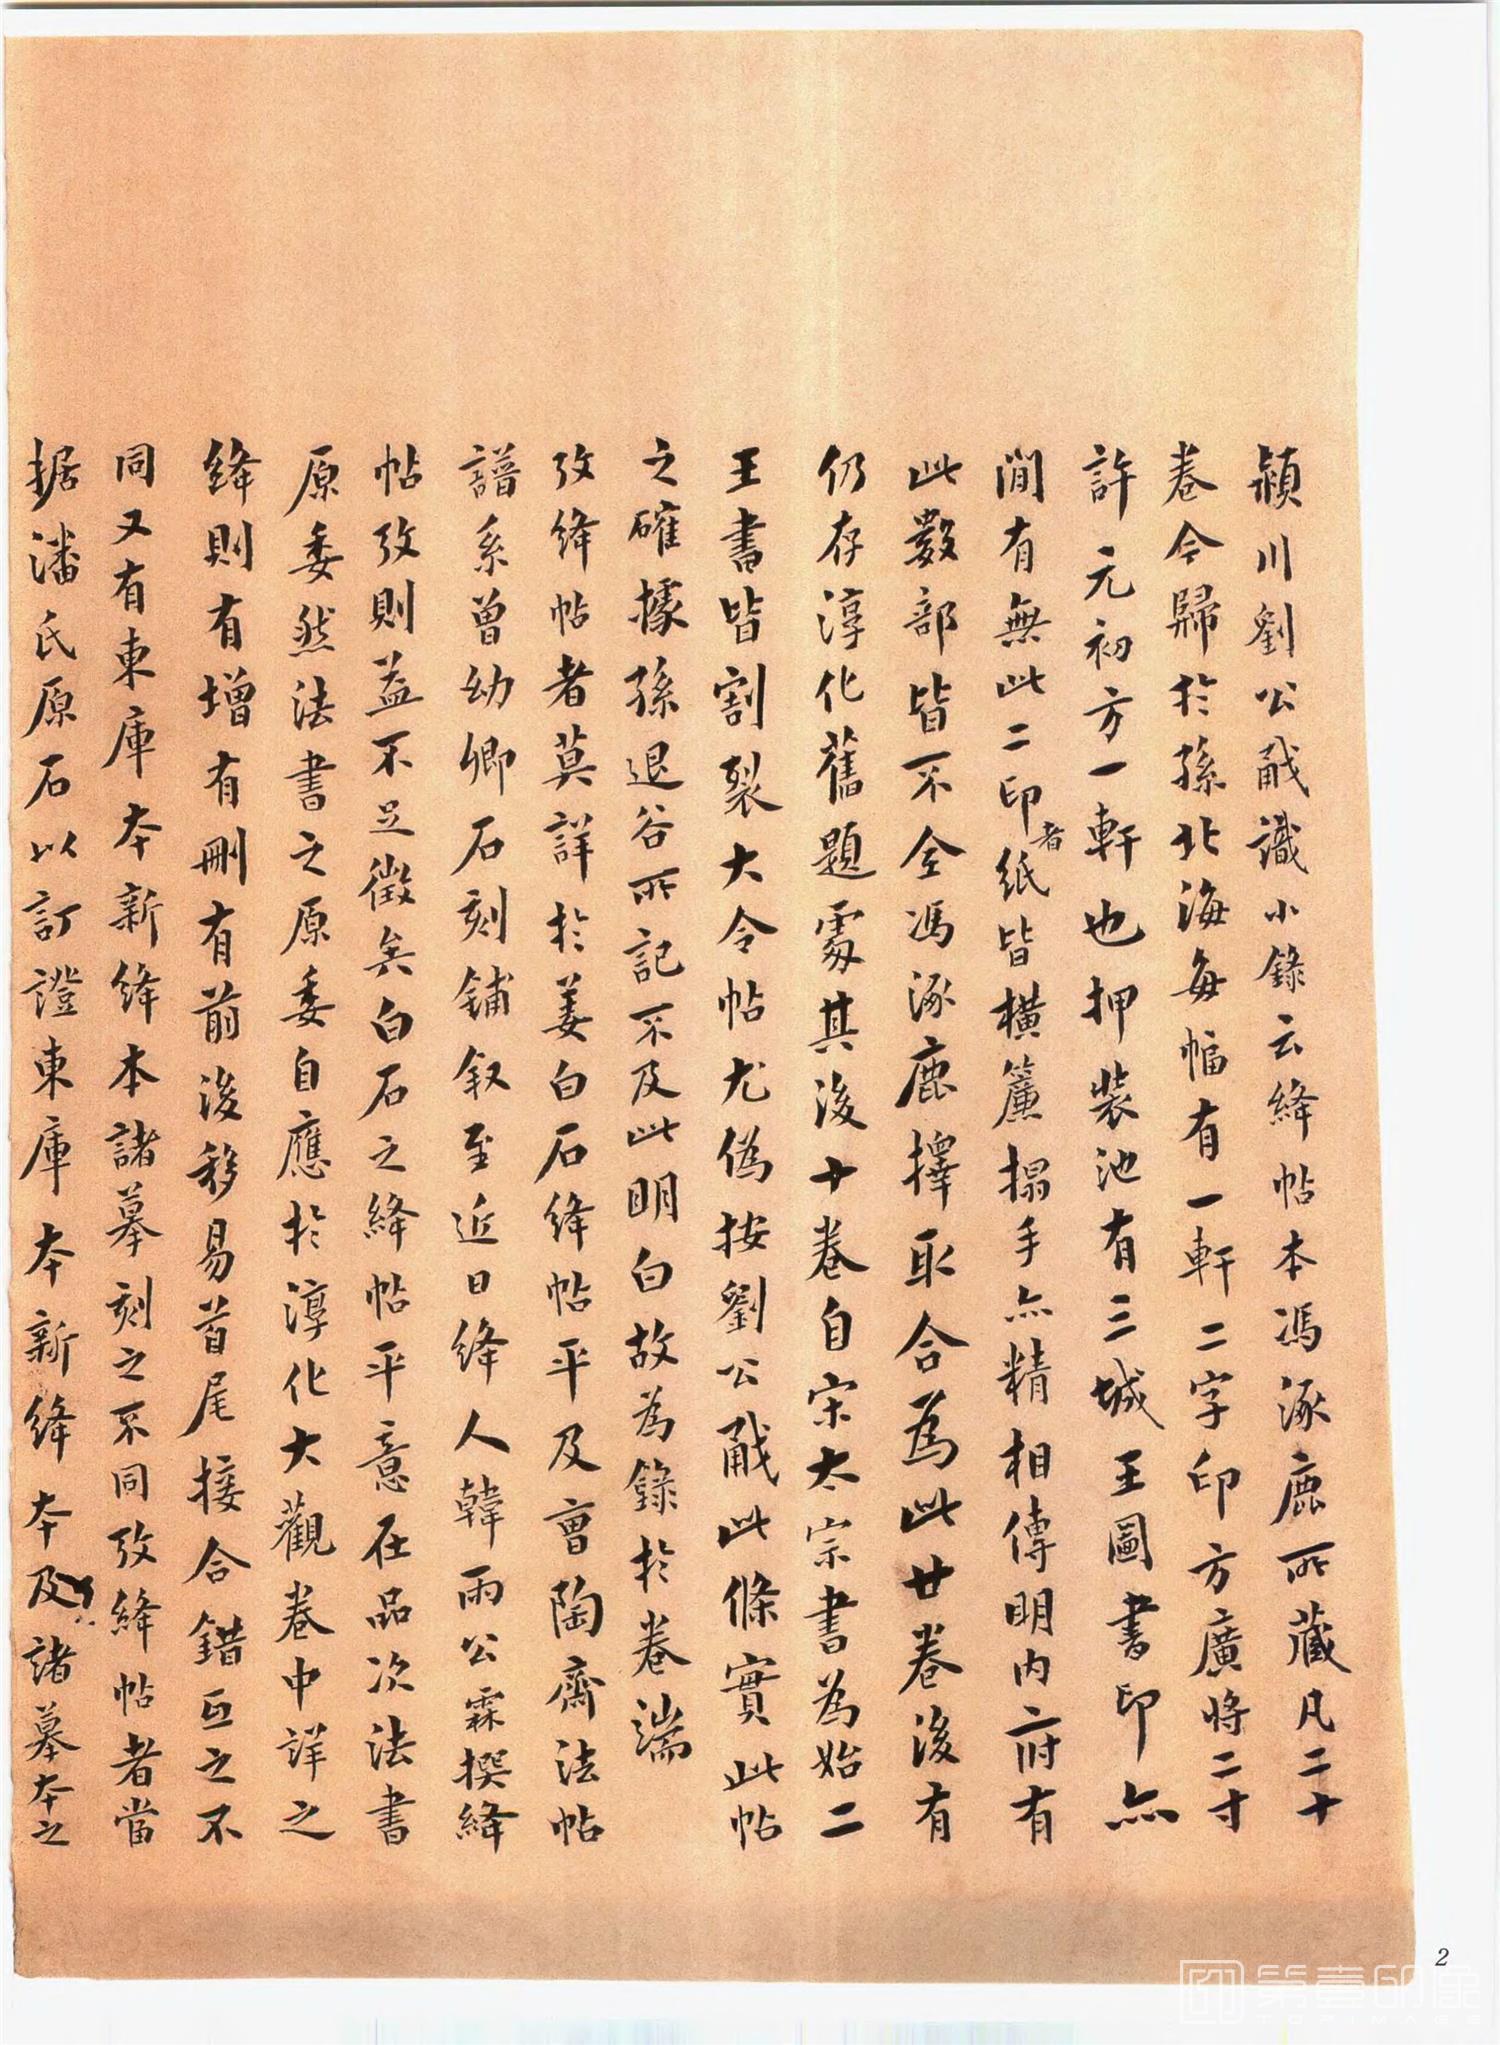 潁川劉公㦷識小錄云絳帖本馮涿鹿所藏凡二十
卷今歸於孫北海每幅有一軒二字印方廣將二寸
許元初方一軒也押裝池有三城王圖書印亦
間有無此二印者紙皆橫簾搨手亦精相傳明内府有
此數部皆不全馮涿鹿擇取合為此廿卷後有
仍存淳化舊題處其後十卷自宋太宗書為始二
王書皆割裂大令帖尤偽按劉公㦷此條實此帖
之確據孫退谷所記不及此明白故為錄於卷端
攷絳帖者莫詳於姜白石絳帖平及曹陶齋法帖
譜系曾幼卿石刻鋪叙至近日絳人韓雨公霖撰絳
帖攷則益不足徵矣白石之絳帖平意在品次法書
原委然法書之原委自應於淳化大觀卷中詳之
絳則有增有刪有前後移易首尾接合錯互之不
同又有東庫本新絳本諸摹刻之不同攷絳帖者當
据潘氏原石以訂證東庫本新絳本及諸摹本之
2
第壹印象
TOPIMAGE